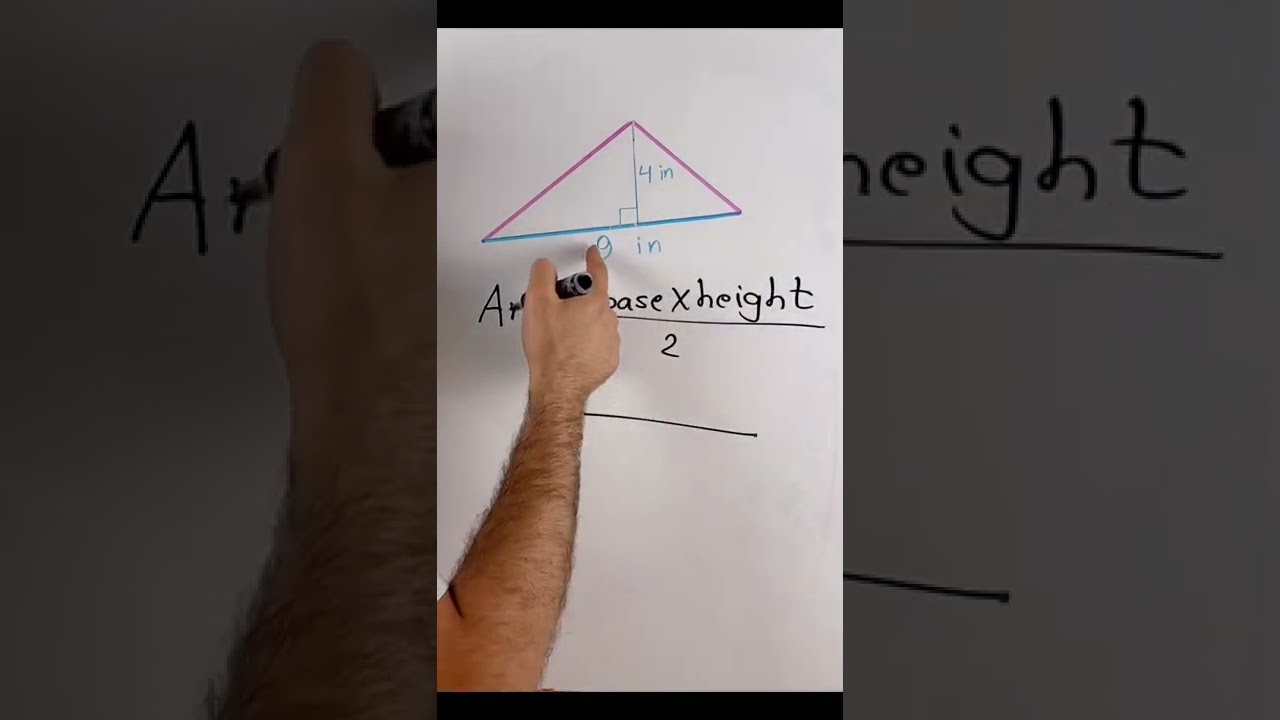 4 in
9 in
base x height
2